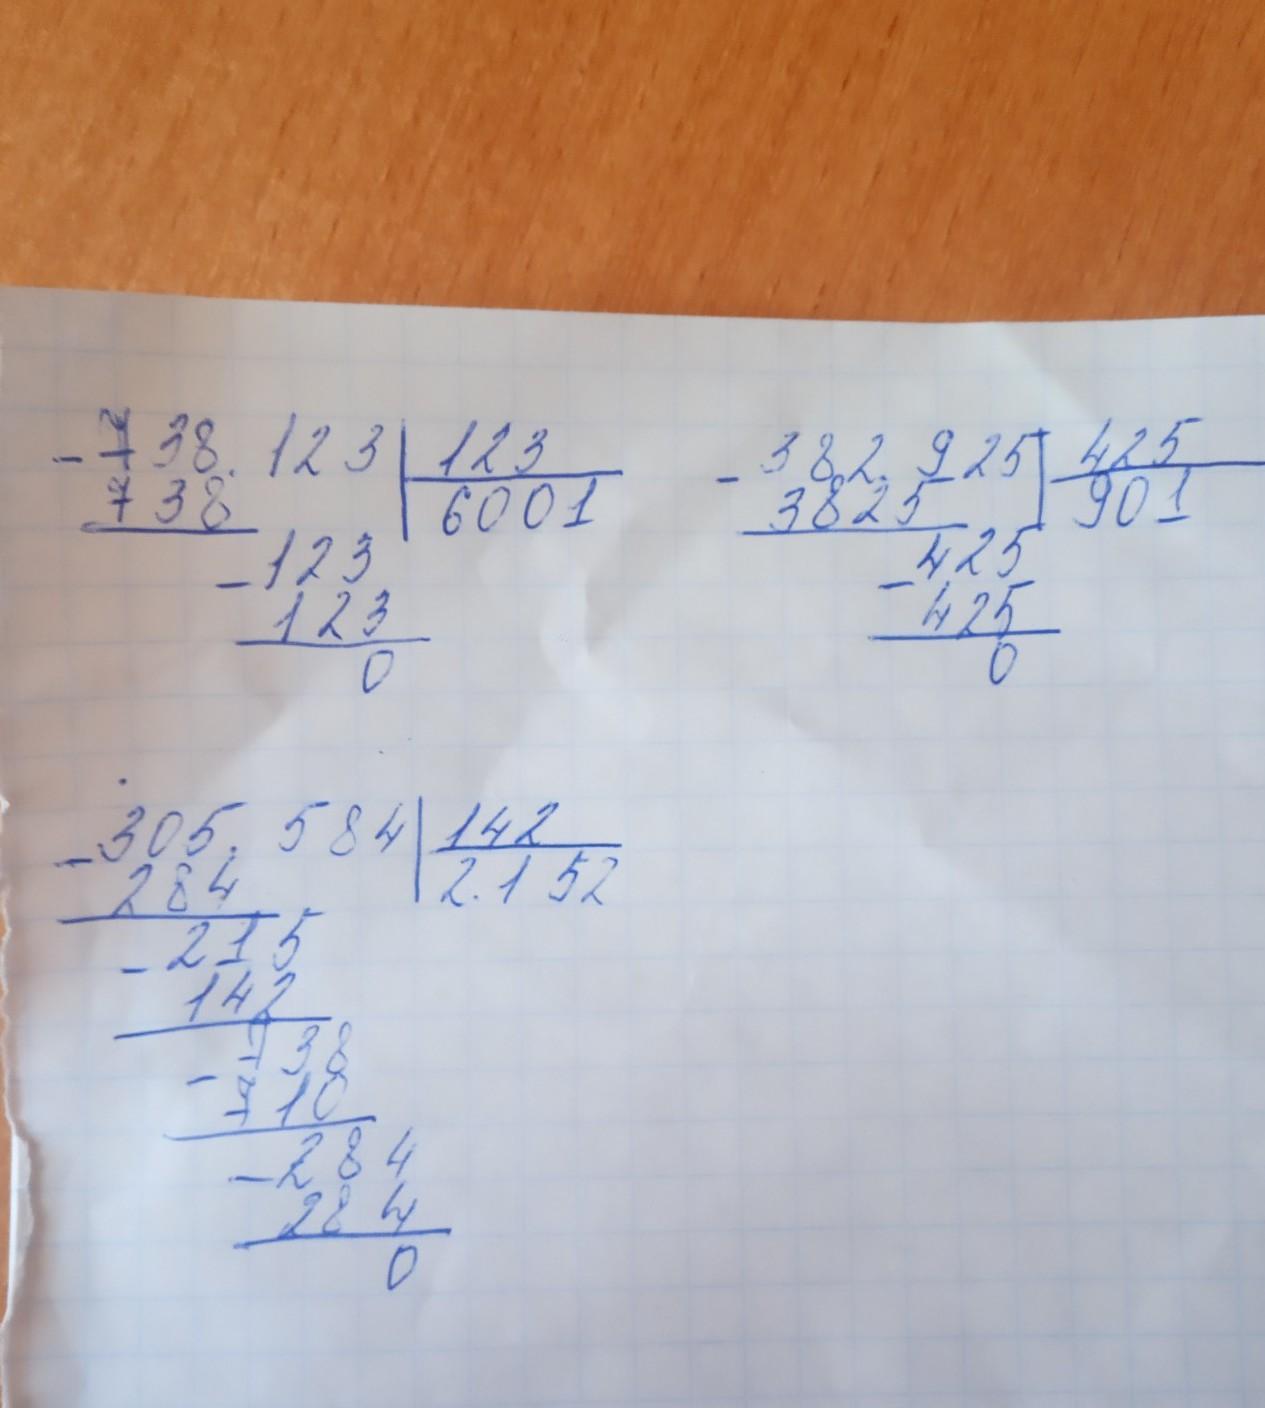 - 738.123 | 123
738 | 6001
- 123
123
0
- 382.925 | 425
3825 | 901
- 425
425
0
- 305.584 | 142
284 | 2.152
- 215
142
- 738
710
- 284
284
0